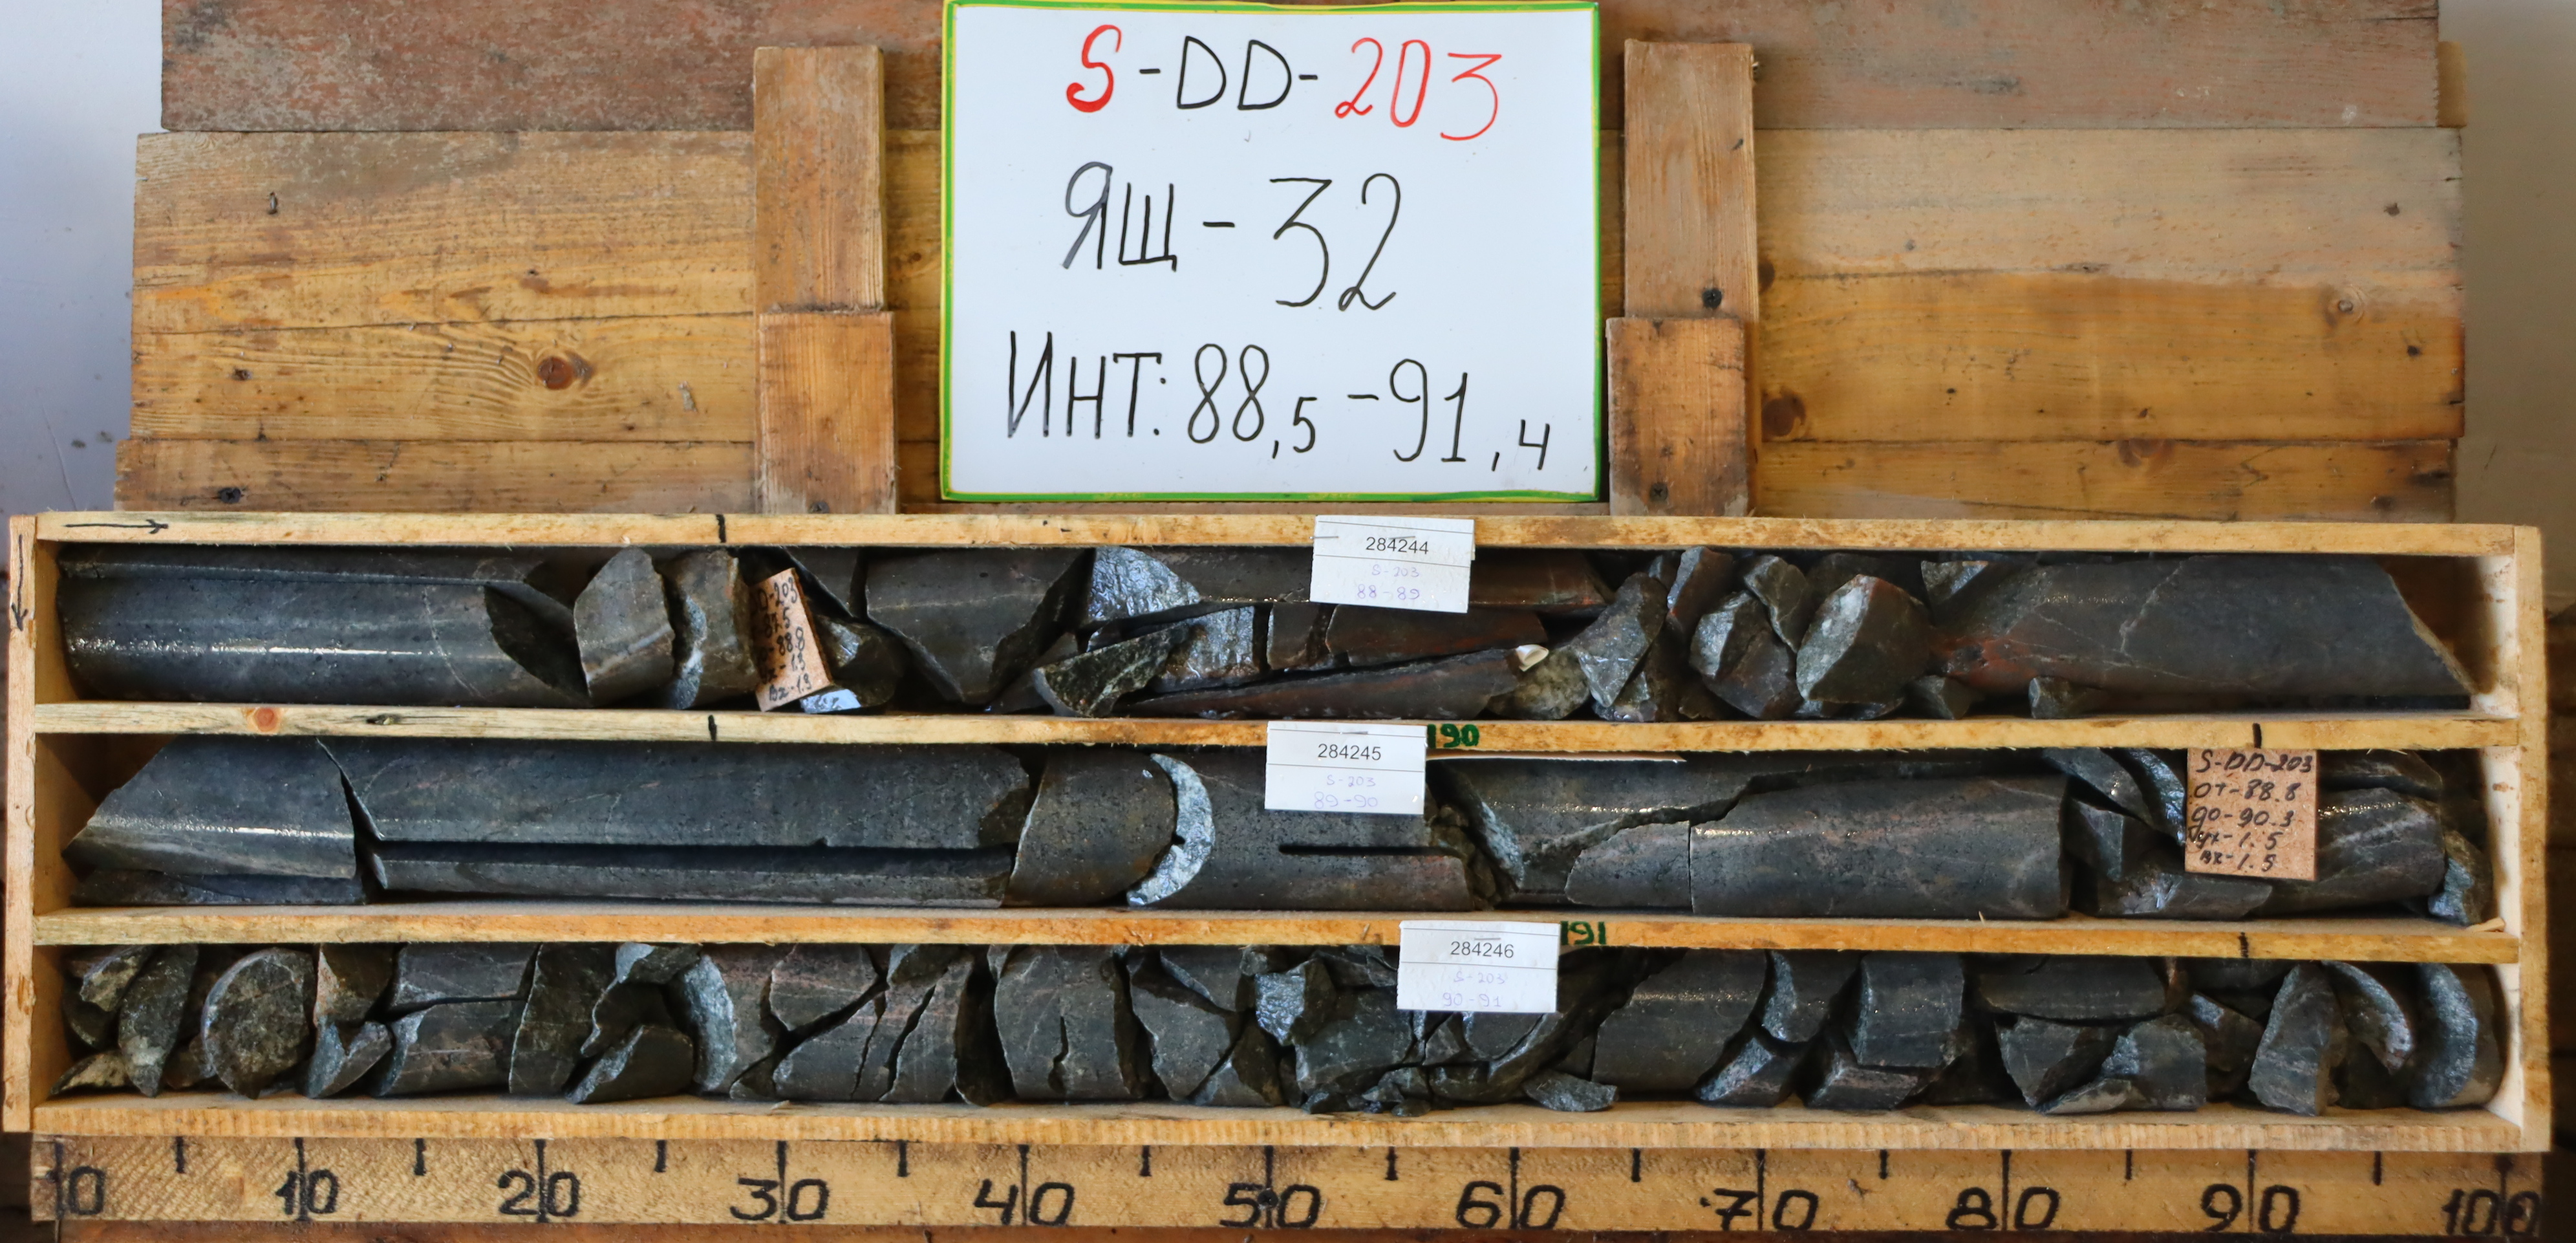 S-DD-203
ЯЩ-32
ИНТ: 88,5-91,4
284244
S-203
88-89
190
284245
S-203
89-90
S-DD-203
от-88.8
до-90.3
ух-1.5
Вк-1.5
191
284246
S-203
90-91
0 10 20 30 40 50 60 70 80 90 100